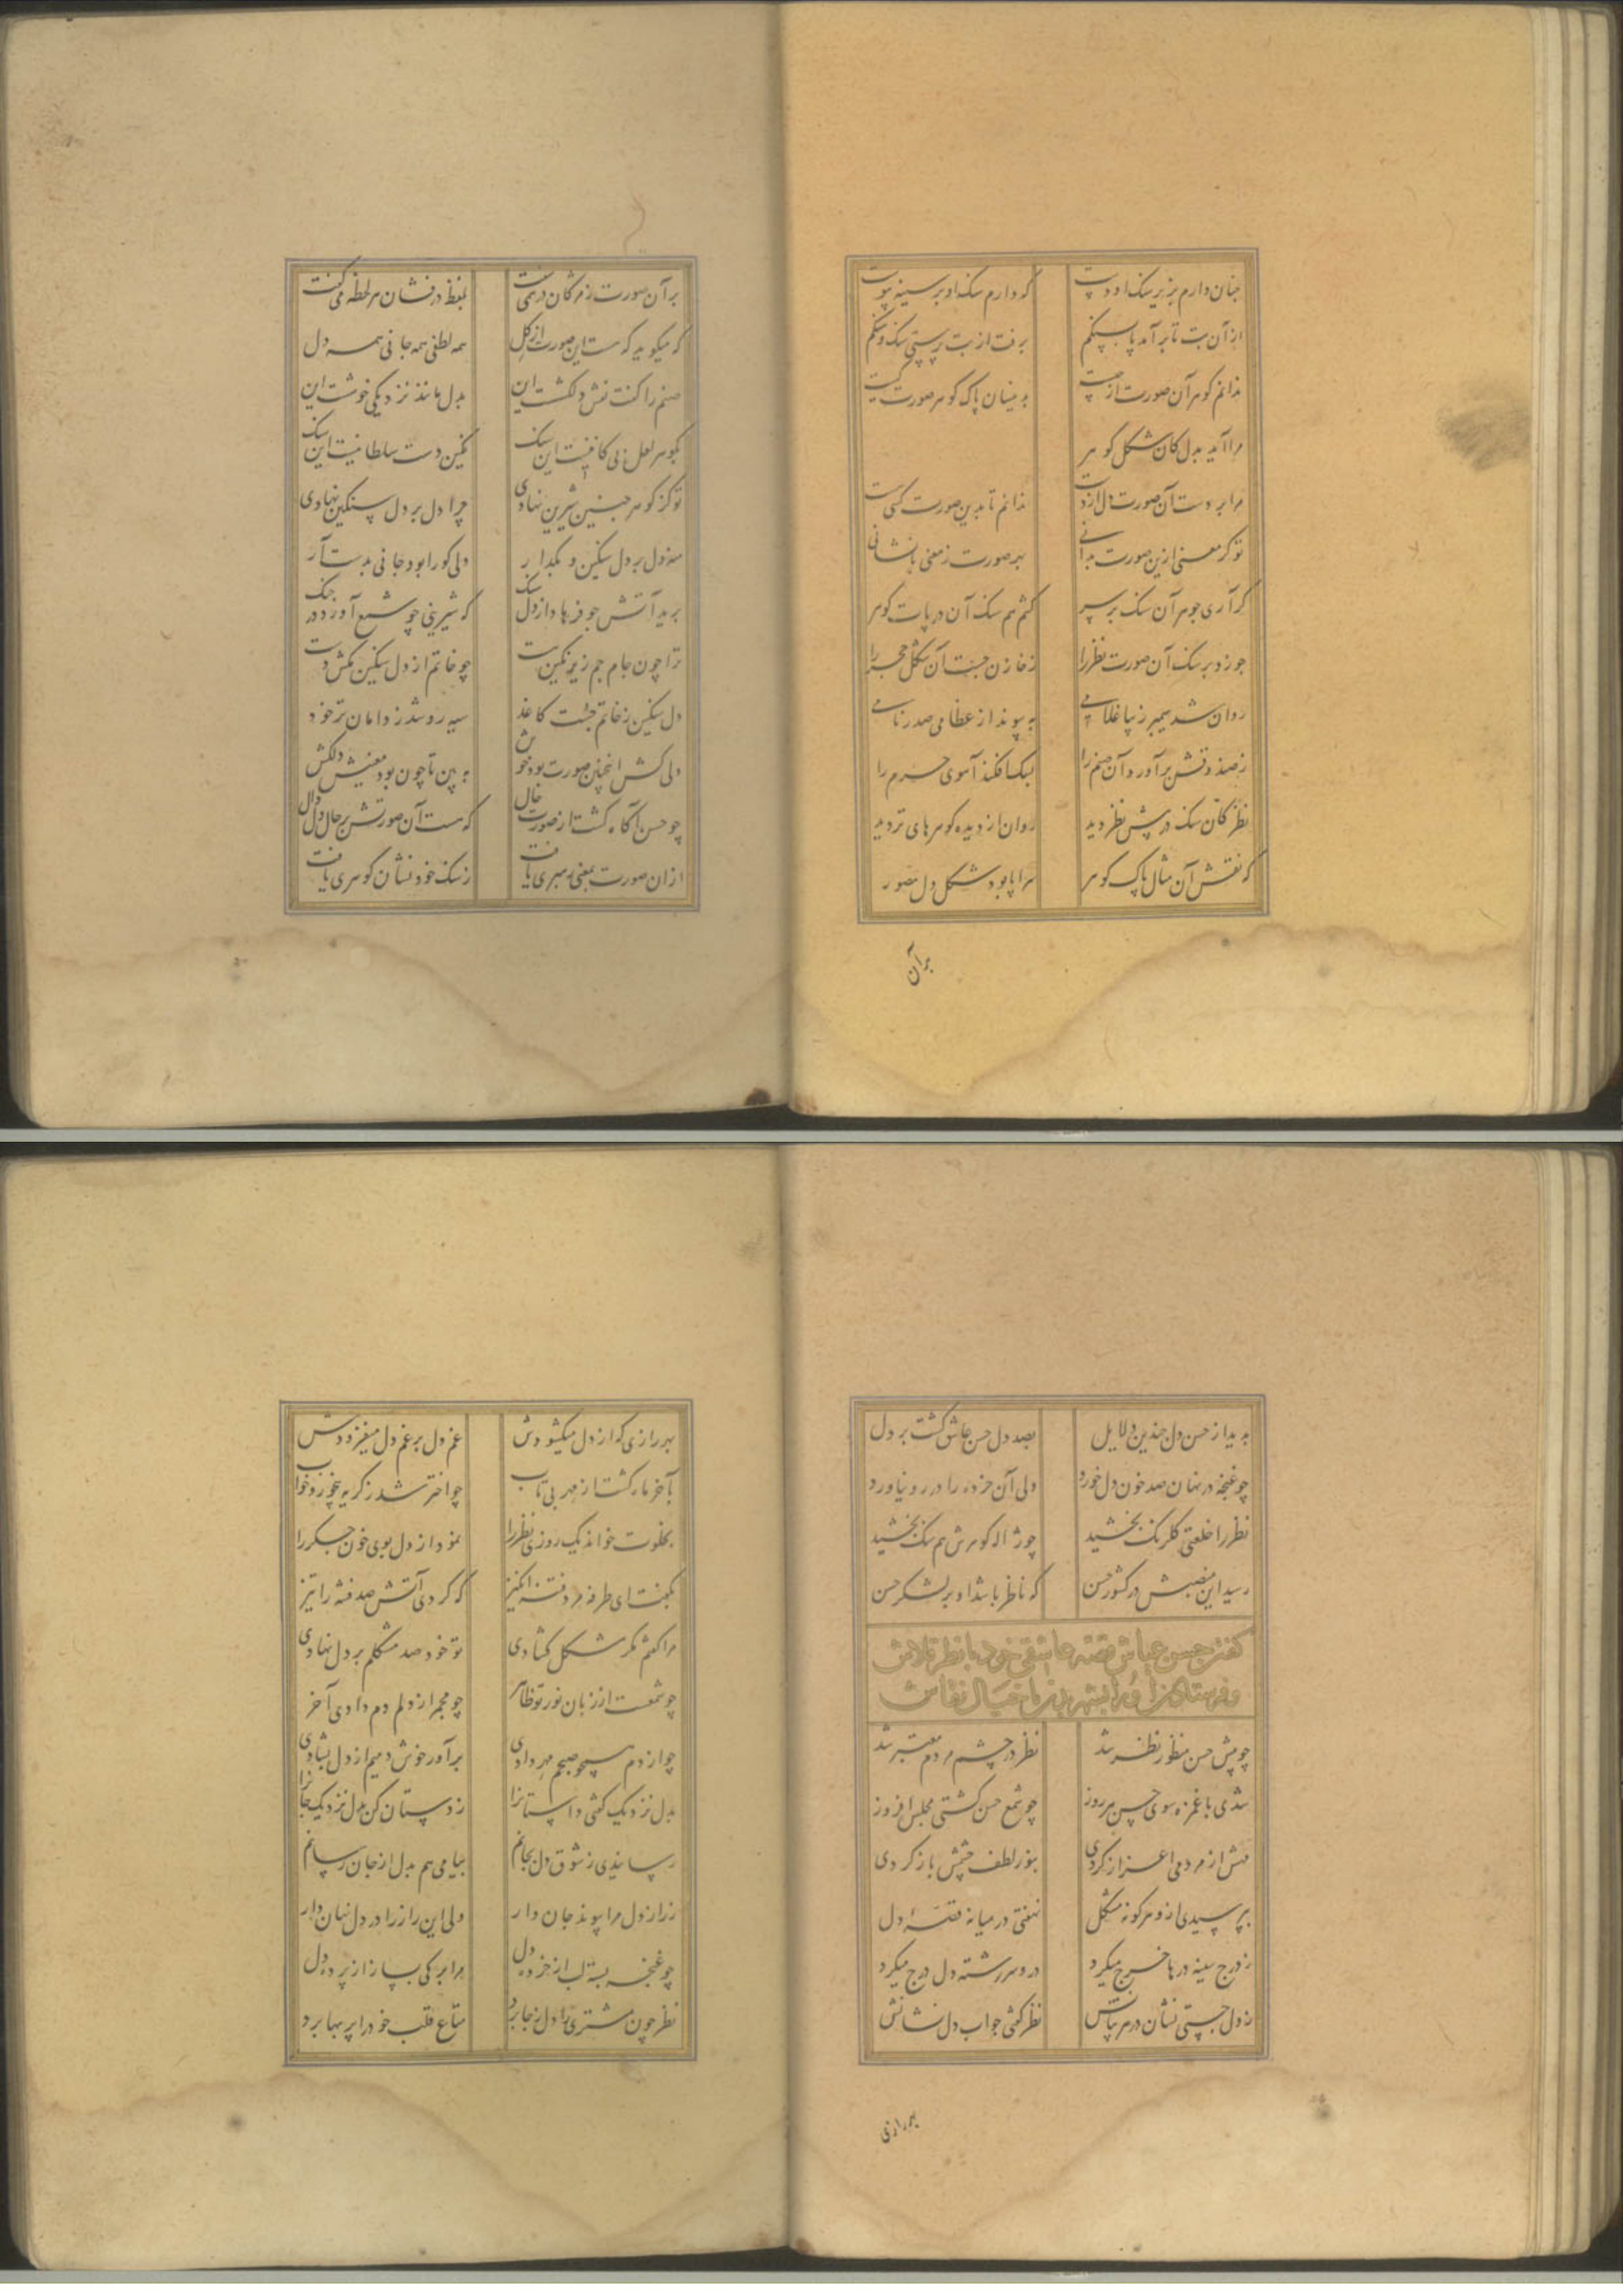 چنان دارم بزیر سنک او دست که دارم سنک او بر سینه پیوست
از آن بت تا برآمد پا بسنکم برفت از بت پرستی سنک و ننکم
ندانم کوهر آن صورت از چیست بدینسان پاک کوهر صورت کیست
مرا آید بدل کان شکل کوهر
مرا برد دست آن صورت دل از دست ندانم تا بدین صورت کسی هست
تو کر معنی ازین صورت بدانی بهر صورت ز معنی بازنشانی
کر آری جوهر آن سنک بر سر کشم هم سنک آن در پات کوهر
چو زد بر سنک آن صورت نظر را ز خازن جست آن شکل حجر را
روان شد سیمبر زیبا غلامی به پیوند از عطا می صدر نامی
ز صندوقش برآورد آن صنم را بسک افکند آهوی حرم را
نظر کان سنک در پیش نظر دید روان از دیده کوهرهای تر دید
که نقش آن مثال پاک کوهر سراپا بود شکل دل مصور
برآن
بر آن صورت ز مژکان در همی سفت بلفظ درفشان هر لحظه می کفت
که میکوید که هست این صورت از کل همه لطفی همه جانی همه دل
صنم را کفت نقش دلکشست این بدل ماند نزدیکی خوشست این
بکوهر لعل بی کانیست این سنک نکین دست سلطانیست این سنک
تو کز کوهر چنین شیرین نهادی چرا دل بر دل سنکین نهادی
منه دل بر دل سنکین و بکذار دلی کورا بود جانی بدست آر
برید آتش چو فرهاد از دل سنک که شیرینی چو شمع آورد در چنک
ترا چون جام جم زیر نکین است چو خاتم از دل سنکین بکش دست
دل سنکین ز خاتم جست کاغذ سیه رو شد ز دامان تر خود
دلی کش اینچنین صورت بود خوش به بین تا چون بود معنیش دلکش
چو حسن آکاه کشت از صورت حال که هست آن صورتش بر حال دل دال
از آن صورت بمعنی رهبری یافت ز سنک خود نشان کوهری یافت
بدید از حسن دل چندین دلایل بصد دل حسن عاشق کشت بر دل
چو غنچه در نهان صد خون دل خورد ولی آن خرده را در رو نیاورد
نظر را خلعتی کلرنک بخشید چو ژاله کوهرش هم سنک بخشید
رسید این منصبش در کشور حسن که ناظر باشد او بر لشکر حسن
کفتن حسن عیاش قصه عاشقی خود با نظر قلاش
و فرستادن او را بشهر بدن با خیال نقاش
چو پیش حسن منظور نظر شد نظر در چشم مردم معتبر شد
شدی با غمزه سوی حسن هر روز چو شمع حسن کشتی مجلس افروز
منش از مردمی اعزاز کردی بنور لطف چشمش باز کردی
بپرسیدی ازو هر کونه مشکل نهفتی در میانه قصه دل
ز درج سینه درها خرج میکرد در و سر رشته دل درج میکرد
ز دل جستی نشان در هر بیانش نظر کفتی جواب دل نشانش
هر رازی
بهر رازی که از دل میکشودش غم دل بر غم دل میفزودش
بآخر ماه کشت از مهر بی تاب چو اختر شد ز کریه بیخور و خواب
بخلوت خواند یک روزی نظر را نمود از دل بوی خون جکر را
بکفت ای طرفه مرد فتنه انکیز که کردی آتش صد فتنه را تیز
مرا کفتم مکر مشکل کشادی تو خود صد مشکلم بر دل نهادی
چو شمعت از زبان نور تو ظاهر چو مجمر از دلم دم دادی آخر
چو از دم همچو صبحم مهر دادی برآور خوش دمیم از دل بشادی
بدل نزدیک کفتی داستانرا ز دوستان کن بدل نزدیک جانرا
رسانیدی ز شوق دل بجانم پیامی هم بدل از جان رسانم
ز راز دل مرا پیوند جان دار ولی این راز را در دل نهان دار
چو غنچه بسته لب از خرده دل مرا برکی بساز از پرده دل
نظر چون مشتری را دل ز جا برد متاع قلب خود را پر بها برد